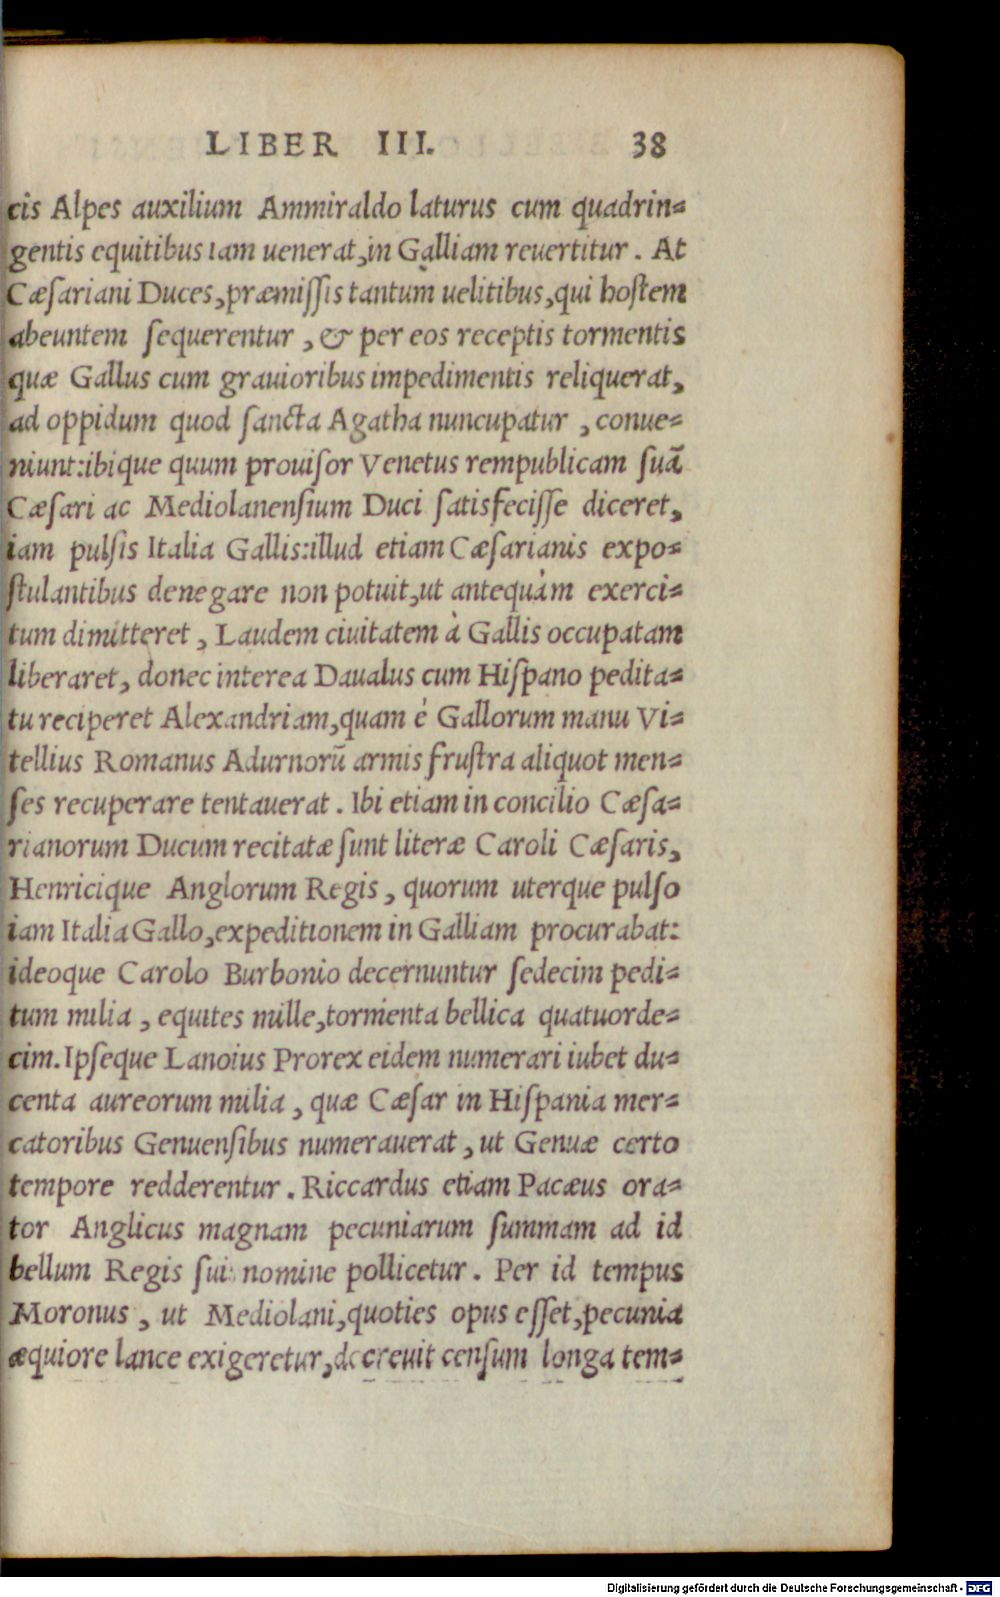 LIBER III. 38
cis Alpes auxilium Ammiraldo laturus cum quadrin-
gentis equitibus iam uenerat, in Galliam reuertitur. At
Cæſariani Duces, præmiſſis tantum uelitibus, qui hoſtem
abeuntem ſequerentur, & per eos receptis tormentis
quæ Gallus cum grauioribus impedimentis reliquerat,
ad oppidum quod ſancta Agatha nuncupatur, conue-
niunt: ibique quum prouiſor Venetus rempublicam ſuã
Cæſari ac Mediolanenſium Duci ſatisfeciſſe diceret,
iam pulſis Italia Gallis: illud etiam Cæſarianis expo-
ſtulantibus denegare non potuit, ut antequàm exerci-
tum dimitteret, Laudem ciuitatem à Gallis occupatam
liberaret, donec interea Daualus cum Hiſpano pedita-
tu reciperet Alexandriam, quam è Gallorum manu Vi-
tellius Romanus Adurnorũ armis fruſtra aliquot men-
ſes recuperare tentauerat. Ibi etiam in concilio Cæſa-
rianorum Ducum recitatæ ſunt literæ Caroli Cæſaris,
Henricique Anglorum Regis, quorum uterque pulſo
iam Italia Gallo, expeditionem in Galliam procurabat:
ideoque Carolo Burbonio decernuntur ſedecim pedi-
tum milia, equites mille, tormenta bellica quatuorde-
cim. Ipſeque Lanoius Prorex eidem numerari iubet du-
centa aureorum milia, quæ Cæſar in Hiſpania mer-
catoribus Genuenſibus numerauerat, ut Genuæ certo
tempore redderentur. Riccardus etiam Pacæus ora-
tor Anglicus magnam pecuniarum ſummam ad id
bellum Regis ſui nomine pollicetur. Per id tempus
Moronus, ut Mediolani, quoties opus eſſet, pecunia
æquiore lance exigeretur, decreuit cenſum longa tem-
Digitalisierung gefördert durch die Deutsche Forschungsgemeinschaft - DFG